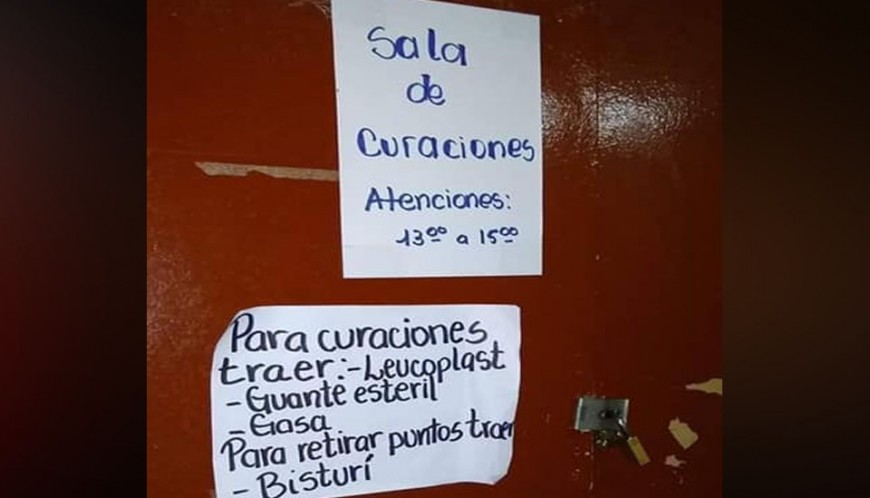 Sala
de
Curaciones
Atenciones:
13⁰⁰ a 15⁰⁰
Para curaciones
traer:-Leucoplast
-Guante esteril
-Gasa
Para retirar puntos traer
-Bisturí